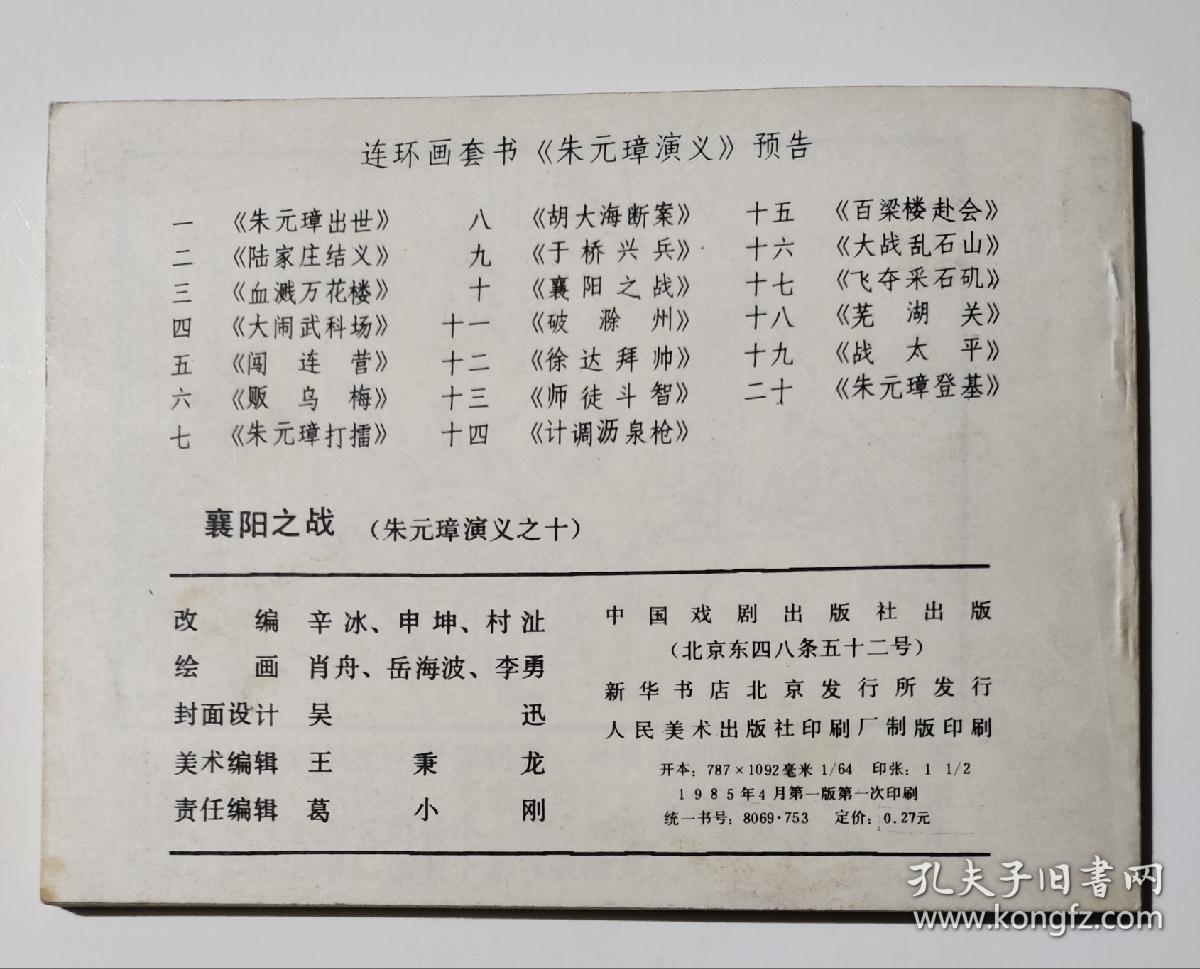 连环画套书《朱元璋演义》预告
一 《朱元璋出世》
二 《陆家庄结义》
三 《血溅万花楼》
四 《大闹武科场》
五 《闯连营》
六 《贩乌梅》
七 《朱元璋打擂》
八 《胡大海断案》
九 《于桥兴兵》
十 《襄阳之战》
十一 《破滁州》
十二 《徐达拜帅》
十三 《师徒斗智》
十四 《计调沥泉枪》
十五 《百梁楼赴会》
十六 《大战乱石山》
十七 《飞夺采石矶》
十八 《芜湖关》
十九 《战太平》
二十 《朱元璋登基》
襄阳之战 (朱元璋演义之十)
改编 辛冰、申坤、村沚
绘画 肖舟、岳海波、李勇
封面设计 吴迅
美术编辑 王秉龙
责任编辑 葛小刚
中国戏剧出版社出版
(北京东四八条五十二号)
新华书店北京发行所发行
人民美术出版社印刷厂制版印刷
开本: 787×1092毫米 1/64 印张: 1 1/2
1985年4月第一版第一次印刷
统一书号: 8069·753 定价: 0.27元
孔夫子旧書网
www.kongfz.com